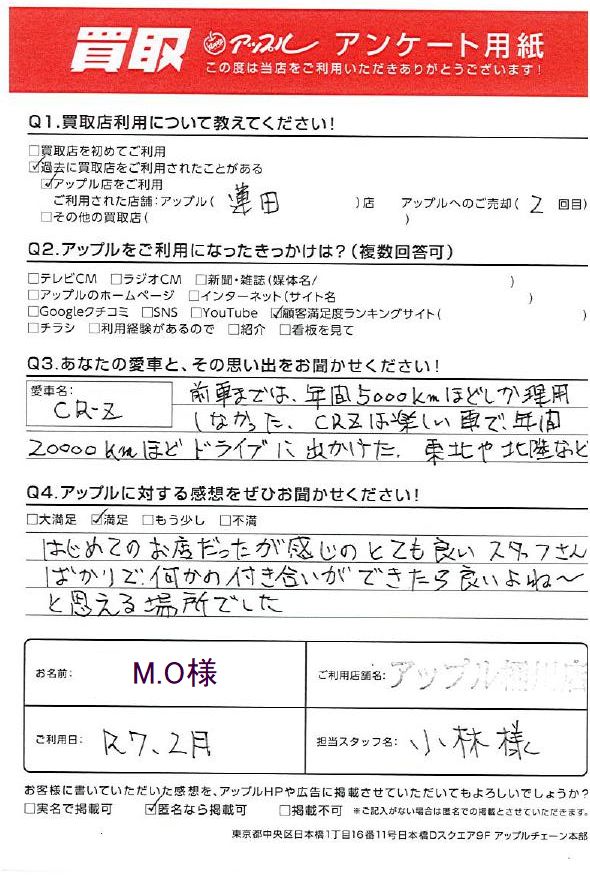 買取 Apple アップル アンケート用紙
この度は当店をご利用いただきありがとうございます！
Q1.買取店利用について教えてください！
□買取店を初めてご利用
☑過去に買取店をご利用されたことがある
☑アップル店をご利用
ご利用された店舗：アップル( 蓮田 )店 アップルへのご売却( 2 回目)
□その他の買取店( )
Q2.アップルをご利用になったきっかけは？(複数回答可)
□テレビCM □ラジオCM □新聞・雑誌(媒体名/ )
□アップルのホームページ □インターネット(サイト名 )
□Googleクチコミ □SNS □YouTube ☑顧客満足度ランキングサイト( )
□チラシ □利用経験があるので □紹介 □看板を見て
Q3.あなたの愛車と、その思い出をお聞かせください！
愛車名： CR-Z
前車までは、年間5000kmほどしか運用
しなかった、CRZは楽しい車で年間
20000kmほどドライブに出かけた。東北や北陸など
Q4.アップルに対する感想をぜひお聞かせください！
□大満足 ☑満足 □もう少し □不満
はじめてのお店だったが感じのとても良いスタッフさん
ばかりで何かの付き合いができたら良いよね〜
と思える場所でした
お名前： M.O様
ご利用店舗名： アップル桶川店
ご利用日： R7.2月
担当スタッフ名： 小林様
お客様に書いていただいた感想を、アップルHPや広告に掲載させていただいてもよろしいでしょうか？
□実名で掲載可 ☑匿名なら掲載可 □掲載不可 ※ご記入がない場合は匿名での掲載とさせていただきます。
東京都中央区日本橋1丁目16番11号日本橋Dスクエア9F アップルチェーン本部